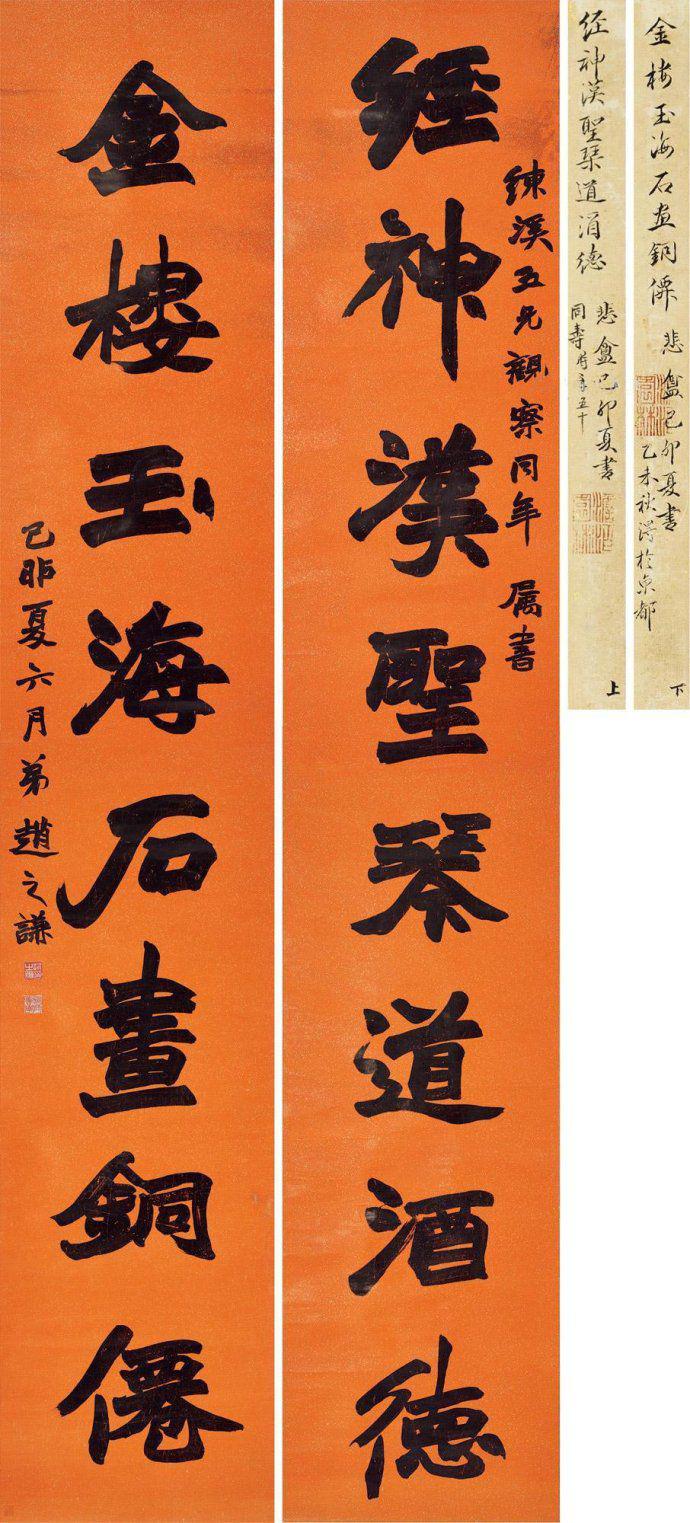 經神漢聖琴道酒德
鍊溪五兄觀察同年 属書
金樓玉海石畫銅僊
己卯夏六月弟趙之謙
经神漢聖琴道酒德
悲盦己卯夏書
同壽時年五十
上
金楼玉海石画銅僊
悲盦己卯夏書
乙未秋得於京都
下